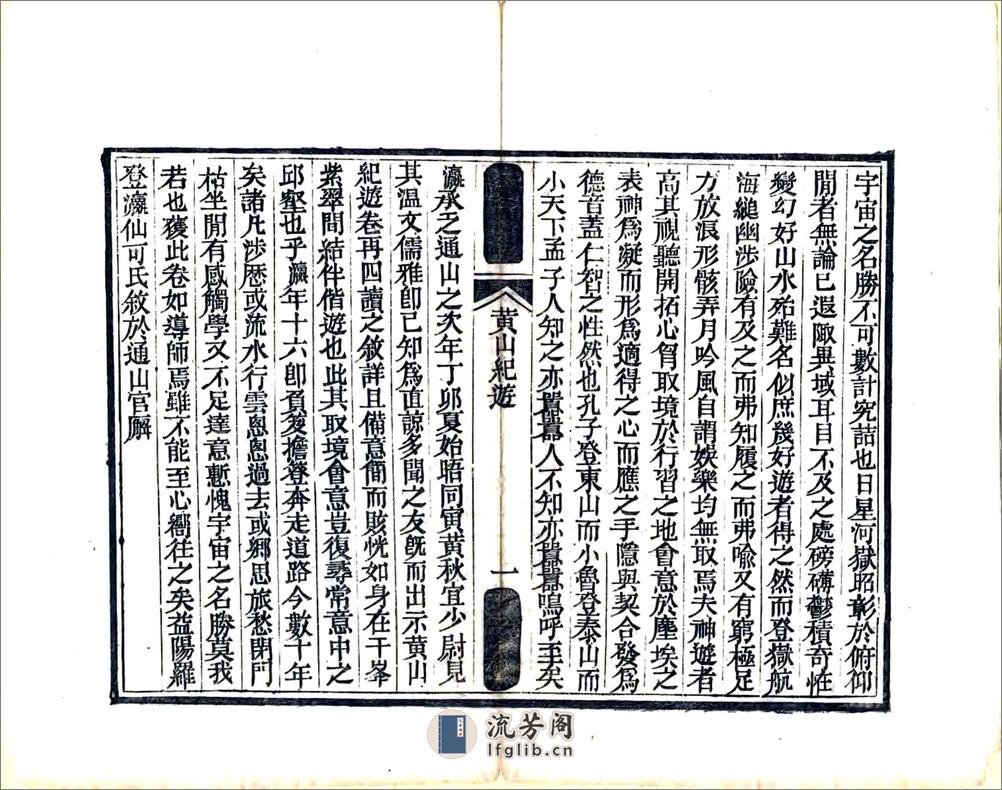 宇宙之名勝不可數計究詰也日星河嶽昭彰於俯仰
閒者無論已遐陬異域耳目不及之處磅礴鬱積奇恠
變幻好山水殆難名似庶幾好遊者得之然而登嶽航
海縋幽涉險有及之而弗知履之而弗喻又有窮極足
力放浪形骸弄月吟風自謂娛樂均無取焉夫神遊者
高其視聽開拓心胷取境於行習之地會意於塵埃之
表神爲凝而形爲適得之心而應之手隱與契合發爲
德音蓋仁智之性然也孔子登東山而小魯登泰山而
小天下孟子人知之亦囂囂人不知亦囂囂嗚呼至矣
黃山紀遊
一
瀛承之通山之次年丁卯夏始晤同寅黃秋宜少尉見
其温文儒雅卽已知爲直諒多聞之友旣而出示黃山
紀遊卷再四讀之敘詳且備意簡而賅恍如身在千峯
紫翠間結伴偕遊也此其取境會意豈復尋常意中之
邱壑也乎瀛年十六卽負笈擔簦奔走道路今數十年
矣諸凡涉歷或流水行雲悤悤過去或鄉思旅愁閉門
枯坐閒有感觸學又不足達意慙愧宇宙之名勝莫我
若也獲此卷如導師焉雖不能至心嚮往之矣益陽羅
登瀛仙可氏敘於通山官廨
流芳阁
lfglib.cn